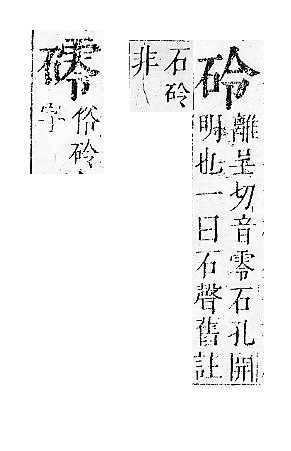 砱
離呈切音零石孔開
明也一曰石聲舊註
石砱
非
俗砱
字